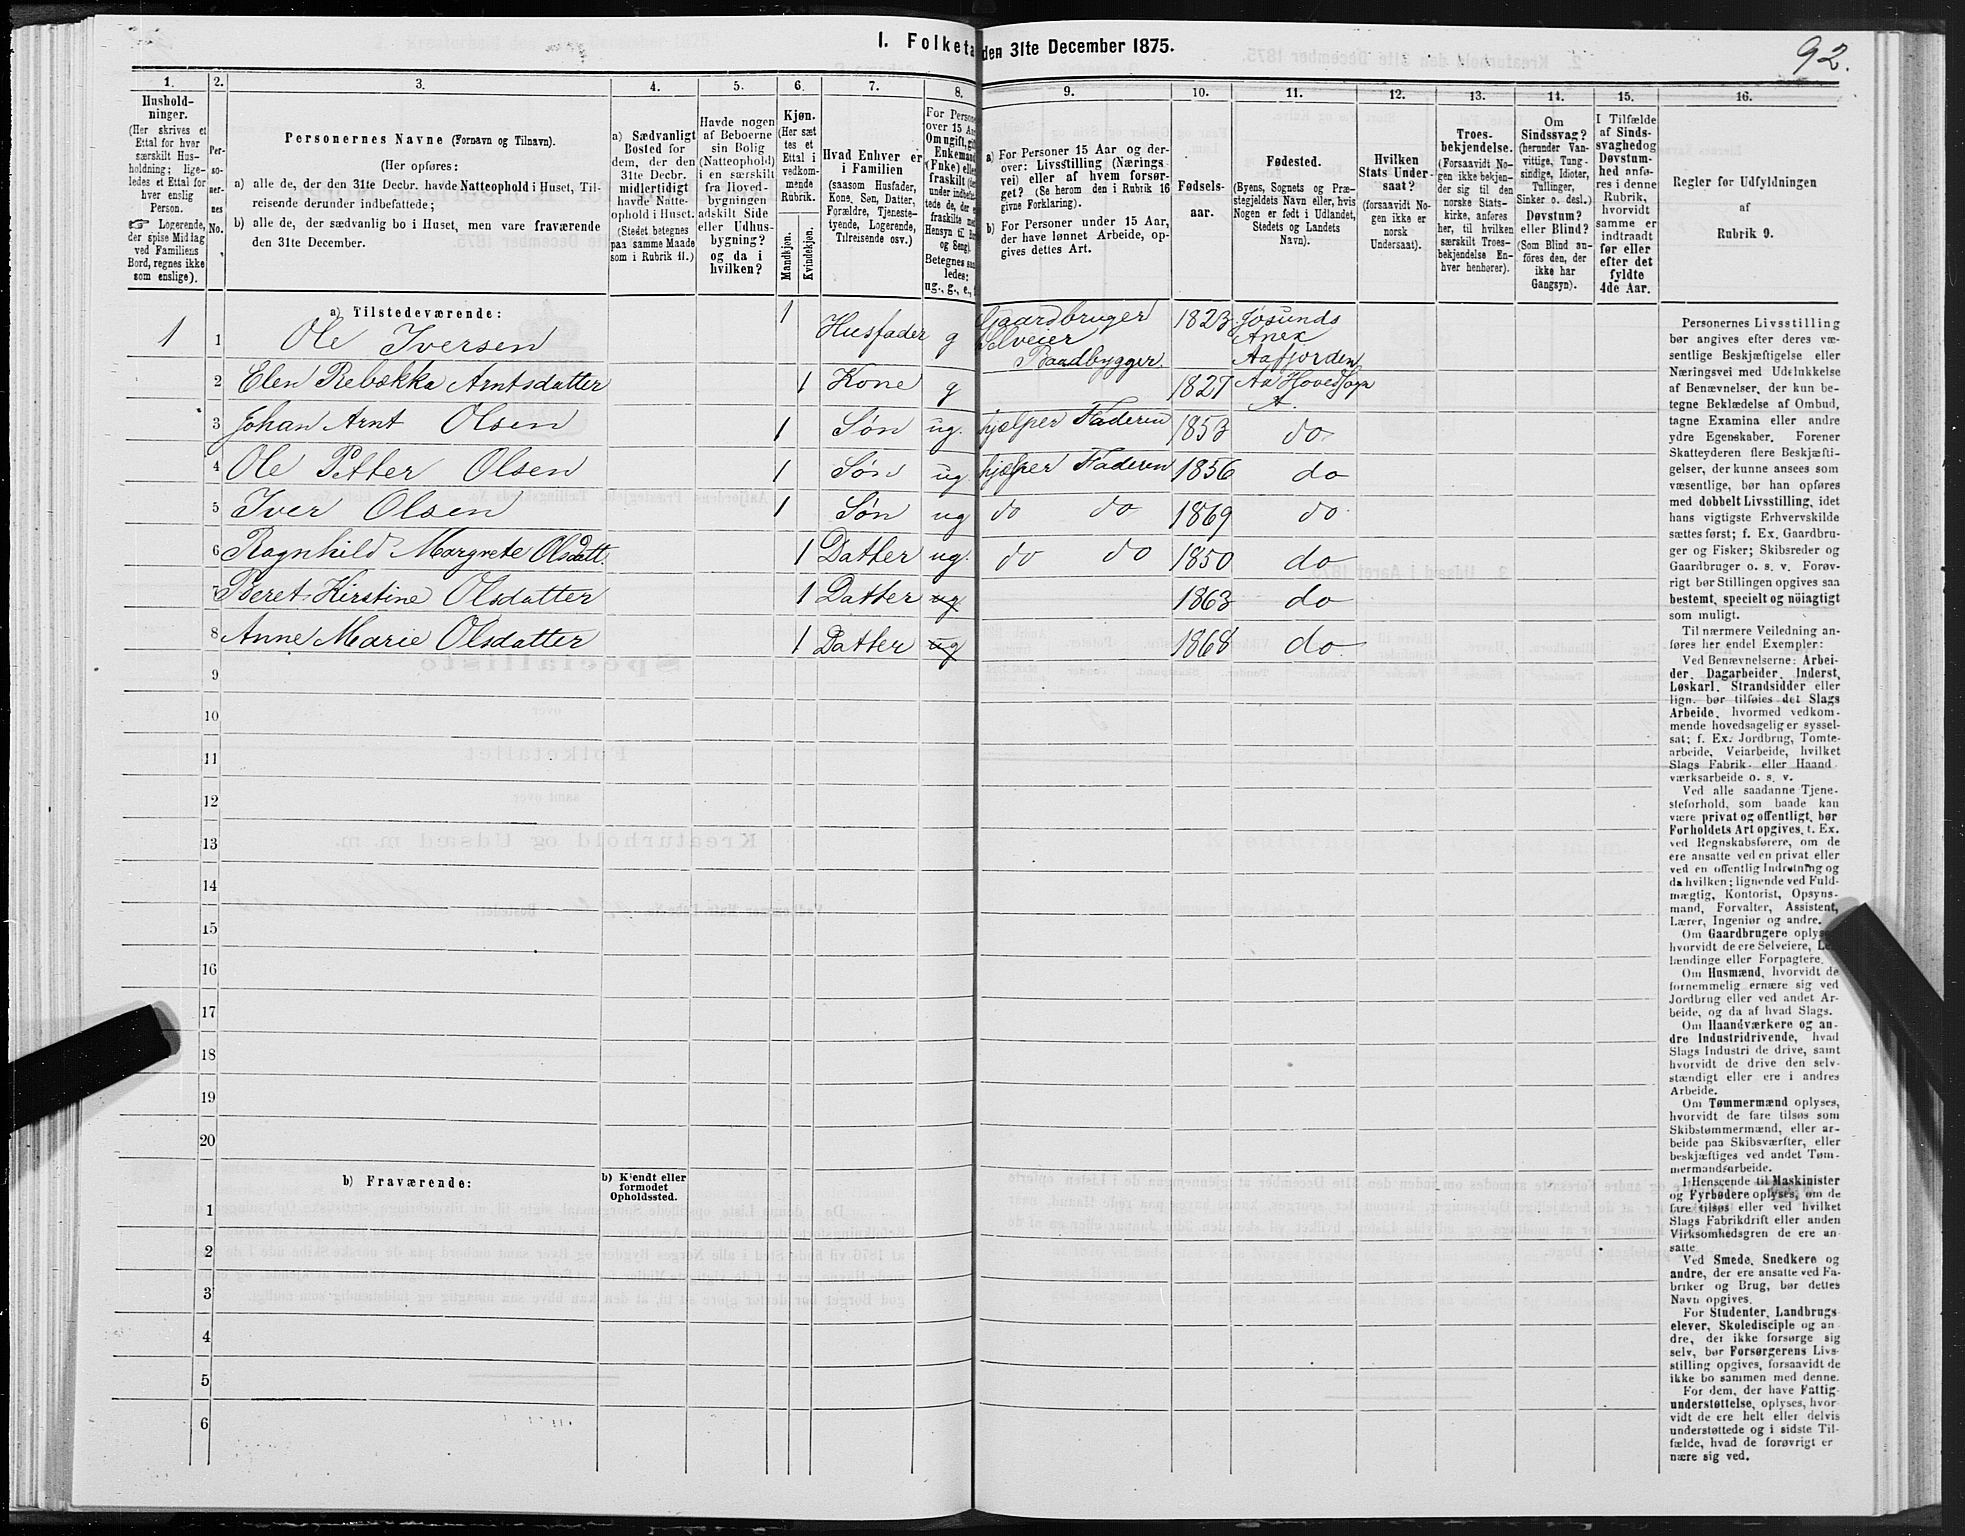 1. Folketa den 31te December 1875.
92.
1. 2. 3. 4. 5. 6. 7. 8. 9. 10. 11. 12. 13. 14. 15. 16.
Hushold-
ninger.
(Her skrives et
Ettal for hver
særskilt Hus-
holdning; lige-
ledes et Ettal for
hver enslig
Person.
☞ Logerende,
der spise Middag
ved Familiens
Bord, regnes ikke
som enslige).
Per-
so-
ner-
nes
No.
Personernes Navne (Fornavn og Tilnavn).
(Her opføres:
a) alle de, der den 31te Decbr. havde Natteophold i Huset, Til-
reisende derunder indbefattede;
b) alle de, der sædvanlig bo i Huset, men vare fraværende
den 31te December.
a) Sædvanligt
Bosted for
dem, der den
31te Decbr.
midlertidigt
havde Natte-
ophold i Huset.
(Stedet betegnes
paa samme Maade
som i Rubrik 11.)
Havde nogen
af Beboerne
sin Bolig
(Natteophold)
i en særskilt
fra Hoved-
bygningen
adskilt Side
eller Udhus-
bygning?
og da i
hvilken?
Kjøn.
(Her sæt
tes et
Ettal i
vedkom-
mende
Rubrik.
Mandkjøn.
Kvindekjøn.
Hvad Enhver er
i Familien
(saasom Husfader,
Kone, Søn, Datter,
Forældre, Tjeneste-
tyende, Logerende,
Tilreisende osv.)
For Persone
over 15 Aar
Om ugift, gift
Enkemand
(Enke) eller
fraskilt
Betegnes saa-
ledes:
ug., g., e.,
a) For Personer 15 Aar og der-
over: Livsstilling (Nærings
vei) eller af hvem forsør-
get? (Se herom den i Rubrik 16
givne Forklaring).
b) For Personer under 15 Aar,
der have lønnet Arbeide, op-
gives dettes Art.
Fødsels-
aar.
Fødested.
(Byens, Sognets og Præ-
stegjeldets Navn eller, hvis
Nogen er født i Udlandet,
Stedets og Landets
Navn).
Hvilken
Stats Under-
saat?
(forsaavidt No-
gen ikke er
norsk
Undersaat).
Troes-
bekjendelse.
(Forsaavidt No-
gen ikke bekjen-
der sig til den
norske Stats-
kirke, anføres
her, til hvilken
særskilt Troes-
bekjendelse En-
hver henhører).
Om
Sindssvag?
(herunder Van-
vittige, Tung-
sindige, Idioter,
Tullinger,
Sinker o. desl.)
Døvstum?
eller Blind?
(Som Blind an-
føres den, der
ikke har
Gangsyn).
I Tilfælde
af Sinds-
svaghed og
Døvstum-
hed anfø-
res i denne
Rubrik,
hvorvidt
samme er
indtraadt
før eller
efter det
fyldte
4de Aar.
Regler før Udfyldningen
af
Rubrik 9.
a) Tilstedeværende:
1 1 Ole Iversen 1 Husfader g Gaardbruger Selveier Baadbygger. 1823 Jøsunds Anex Aafjorden
2 Elen Rebekka Arntsdatter 1 Kone g 1827 Aa HovedSogn A.
3 Johan Arnt Olsen 1 Søn ug. hjælper Faderen 1853 do
4 Ole Petter Olsen 1 Søn ug. hjælper Faderen 1856 do
5 Iver Olsen 1 Søn ug do do 1869 do
6 Ragnhild Margrete Olsdatt. 1 Datter ug. do do 1850 do
7 Beret Kirstine Olsdatter 1 Datter ug 1863 do
8 Anne Marie Olsdatter 1 Datter ug 1868 do
9
10
11
12
13
14
15
16
17
18
19
20
b) Fraværende:
b) Kjendt eller
formodet
Opholdssted.
1
2
3
4
5
6
Personernes Livsstilling
bør angives efter deres væ-
sentlige Beskjæftigelse eller
Næringsvei med Udelukkelse
af Benævnelser, der kun be-
tegne Beklædelse af Ombud,
tagne Examina eller andre
ydre Egenskaber. Forener
Skatteyderen flere Beskjæfti-
gelser, der kunne ansees som
væsentlige, bør han opføres
med dobbelt Livsstilling, idet
hans vigtigste Erhvervskilde
sættes først; f. Ex. Gaardbru-
ger og Fisker; Skibsreder og
Gaardbruger o. s. v. Forøv-
rigt bør Stillingen opgives saa
bestemt, specielt og nöiagtigt
som muligt.
Til nærmere Veiledning an-
føres her endel Exempler:
Ved Benævnelserne: Arbei-
der, Dagarbeider, Inderst,
Løskarl, Strandsidder eller
lign. bør tilføies det Slags
Arbeide, hvormed vedkom-
mende hovedsagelig er syssel-
sat; f. Ex. Jordbrug, Tomte-
arbeide, Veiarbeide, hvilket
Slags Fabrik- eller Haand
værksarbeide o. s. v.
Ved alle saadanne Tjene-
steforhold, som baade kan
være privat og offentligt, bør
Forholdets Art opgives, t. Ex.
ved Regnskabsførere, om de
ere ansatte ved en privat eller
ved en offentlig Indretning og
da hvilken; lignende ved Fuld-
mægtig, Kontorist, Opsyns-
mand, Forvalter, Assistent,
Lærer, Ingeniør og andre.
Om Gaardbrugere oplyses
hvorvidt de ere Selveiere, Lei
lændinge eller Forpagtere.
Om Husmænd, hvorvidt de
fornemmelig ernære sig ved
Jordbrug eller ved andet Ar-
beide, og da af hvad Slags.
Om Haandværkere og an-
dre Industridrivende, hvad
Slags Industri de drive, samt
hvorvidt de drive den selv-
stændigt eller ere i andres
Arbeide.
Om Tømmermænd oplyses,
hvorvidt de fare tilsøs som
Skibstømmermænd, eller ar-
beide paa Skibsværfter, eller
beskjæftiges ved andet Tøm-
mermandsarbeide.
I Henseende til Maskinister
og Fyrbødere oplyses, om de
fare tilsøs eller ved hvilket
Slags Fabrikdrift eller anden
Virksomhedsgren de ere an-
satte.
Ved Smede, Snedkere og
andre, der ere ansatte ved Fa-
briker og Brug, bør dettes
Navn opgives.
For Studenter, Landbrugs
elever, Skoledisciple og an
dre, der ikke forsørge sig
selv, bør Forsørgerens Livs-
stilling opgives, forsaavidt de
ikke bo sammen med denne.
For dem, der have Fattig-
understøttelse, oplyses, hvor-
vidt de ere helt eller delvis
understøttede og i sidste Til-
fælde, hvad de forøvrigt er
nære sig ved.